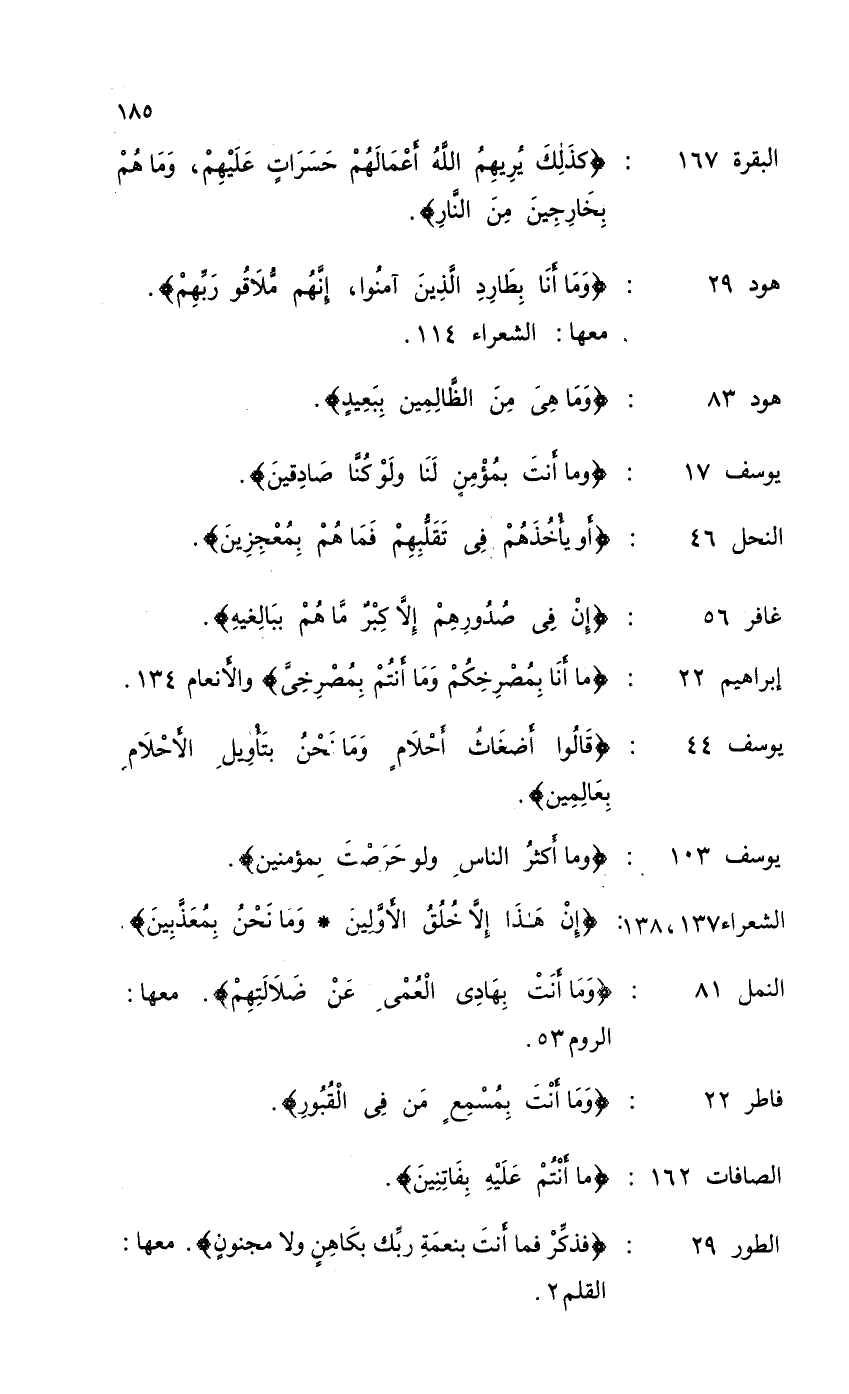 ١٨٥
البقرة ١٦٧ : ﴿كذَلِكَ يُرِيهِمُ اللَّهُ أَعْمَالَهُمْ حَسَرَاتٍ عَلَيْهِمْ، وَمَا هُمْ
بِخَارِجِينَ مِنَ النَّارِ﴾.
هود ٢٩ : ﴿وَمَا أَنَا بِطَارِدِ الَّذِينَ آمنُوا، إِنَّهُم مُّلَاقُو رَبِّهِمْ﴾.
معها : الشعراء ١١٤.
هود ٨٣ : ﴿وَمَا هِىَ مِنَ الظَّالِمِين بِبَعِيدٍ﴾.
يوسف ١٧ : ﴿وما أَنتَ بمُؤْمِنٍ لَنَا ولَوْ كُنَّا صَادِقينَ﴾.
النحل ٤٦ : ﴿أَو يأْخُذَهُمْ فِى تَقَلُّبِهِمْ فَمَا هُمْ بِمُعْجِزِينَ﴾.
غافر ٥٦ : ﴿إِنْ فِى صُدُورِهِمْ إِلاَّ كِبْرٌ مَّا هُمْ ببَالِغيهِ﴾.
إبراهيم ٢٢ : ﴿ما أَنَا بِمُصْرِخِكُمْ وَمَا أَنتُمْ بِمُصْرِخِىَّ﴾ والأنعام ١٣٤.
يوسف ٤٤ : ﴿قَالُوا أَضغَاثُ أَحْلَامٍ وَمَا نَحْنُ بتَأْوِيلِ الأَحْلَامِ
بِعَالِمِين﴾.
يوسف ١٠٣ : ﴿وما أَكثرُ الناسِ ولو حَرَصْتَ بمؤمنين﴾.
الشعراء ١٣٧، ١٣٨: ﴿إِنْ هَـٰذَا إِلاَّ خُلُقُ الأَوَّلِينَ * وَمَا نَحْنُ بِمُعَذَّبِينَ﴾.
النمل ٨١ : ﴿وَمَا أَنَتْ بِهَادِى الْعُمْىِ عَنْ ضَلَالَتِهِمْ﴾. معها :
الروم ٥٣.
فاطر ٢٢ : ﴿وَمَا أَنْتَ بِمُسْمِعٍ مَن فِى الْقُبُورِ﴾.
الصافات ١٦٢ : ﴿ما أَنْتُمْ عَلَيْهِ بِفَاتِنِينَ﴾.
الطور ٢٩ : ﴿فذكِّرْ فما أَنتَ بنعمَةِ ربِّك بكَاهنٍ ولا مجنونٍ﴾. معها :
القلم ٢.